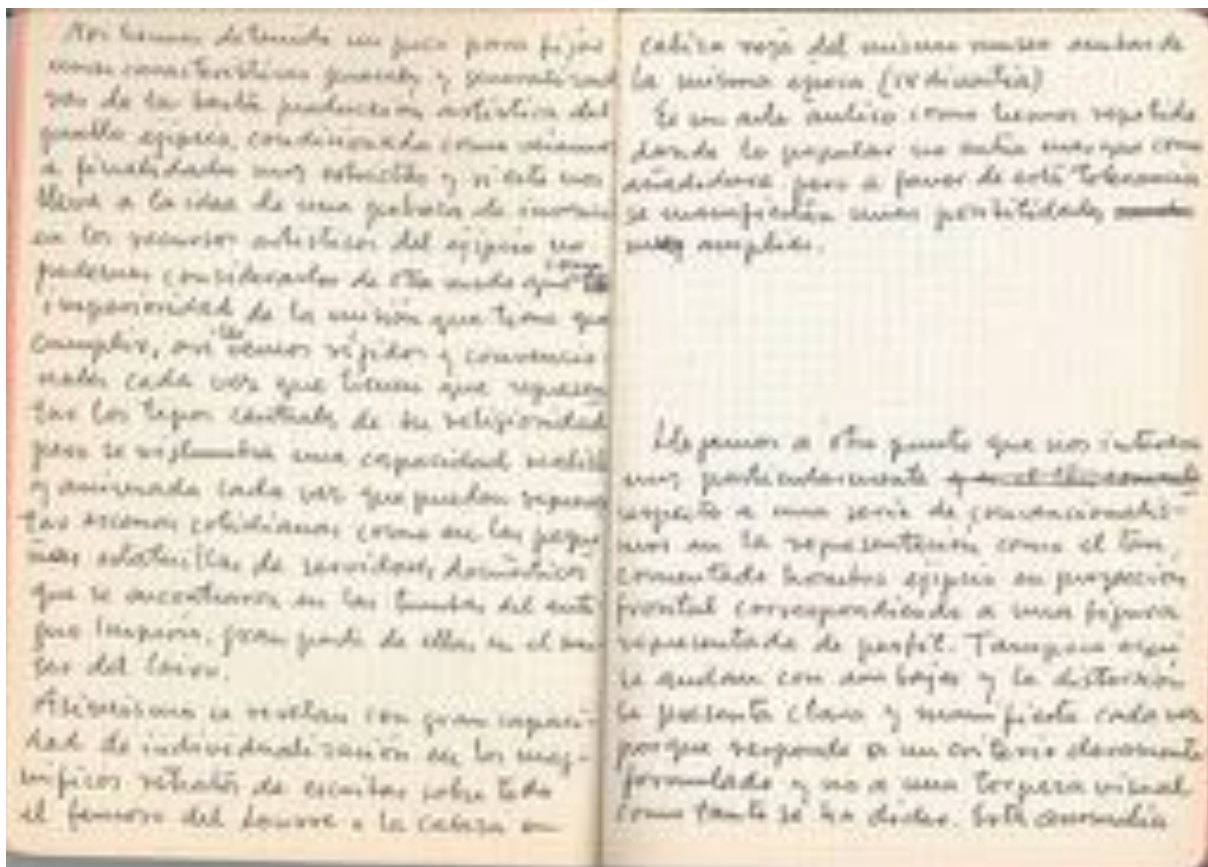 Nos hemos detenido un poco para fijar
unas características generales y
de la producción artística del
pueblo egipcio, condicionada como
a finalidades muy estrictas y si esto nos
lleva a la idea de una pobreza de
en los recursos artísticos del egipcio no
podemos considerarlos de otro modo que
de la misión que tiene que
cumplir, así los vemos rígidos y convencio-
nales cada vez que tienen que represen
tar los tipos centrales de su religiosidad
pero se vislumbra una capacidad realista
y animada cada vez que puedan represen
tar escenas cotidianas como en las peque
ñas estatuillas de servidores domésticos
que se encontraron en las tumbas del anti
guo Imperio, gran parte de ellas en el mu
seo del Cairo.
Asimismo se revelan con gran capaci-
dad de individualización en los mag-
níficos retratos de escribas sobre todo
el famoso del Louvre o la cabeza en
caliza roja del mismo museo ambas de
la misma época (IV dinastía)
Es un arte áulico como hemos repetido
donde lo popular no entra mas que como
añadidura pero a favor de esta tolerancia
se manifiestan unas posibilidades
muy amplias.
Llegamos a otro punto que nos interesa
muy particularmente
respecto a una serie de convencionalis-
mos en la representación como el tan
comentado hombro egipcio en proyección
frontal correspondiendo a una figura
representada de perfil. Tampoco aquí
se andan con ambajes y la distorsión
se presenta clara y manifiesta cada vez
porque responde a un criterio claramente
formulado y no a una torpeza visual
como tanto se ha dicho. Esta anomalía